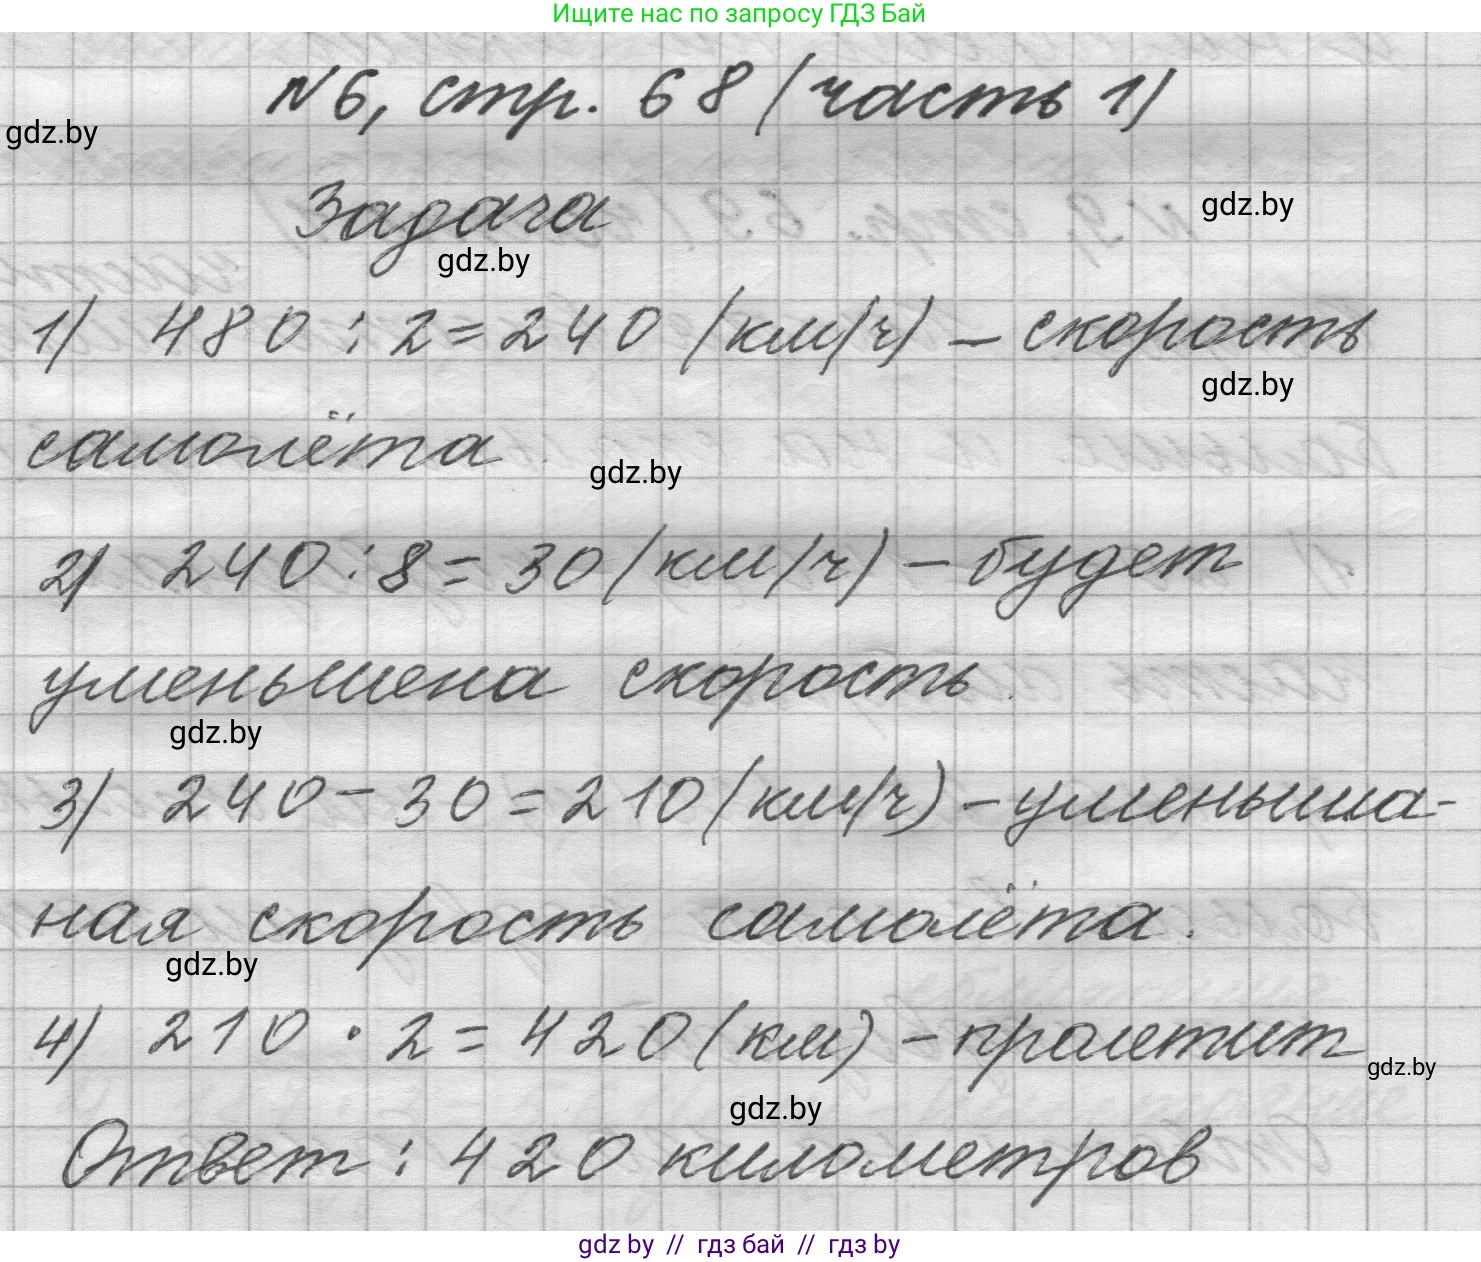 Ищите нас по запросу ГДЗ Бай
N6, стр. 68 (часть 1)
gdz.by
Задача
gdz.by
gdz.by
1) 480 : 2 = 240 (км/ч) – скорость
gdz.by
самолёта
gdz.by
2) 240 : 8 = 30 (км/ч) – будет
уменьшена скорость.
gdz.by
3) 240 – 30 = 210 (км/ч) – уменьша-
ная скорость самолёта.
gdz.by
4) 210 · 2 = 420 (км) – пролетит
gdz.by
gdz.by
Ответ : 420 километров
gdz by // гдз бай // гдз by